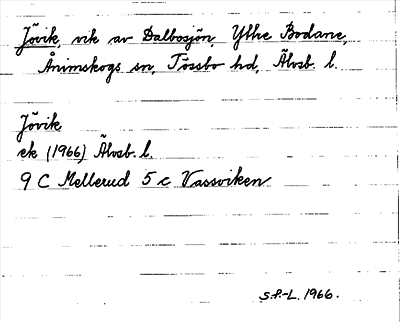 Jövik, vik av Dalbosjön, Yttre Bodane,
Ånimskogs sn, Tössbo hd, Älvsb. l.
Jövik
ek (1966) Älvsb. l.
9 C Mellerud 5 c Vassviken
S.F.-L. 1966.